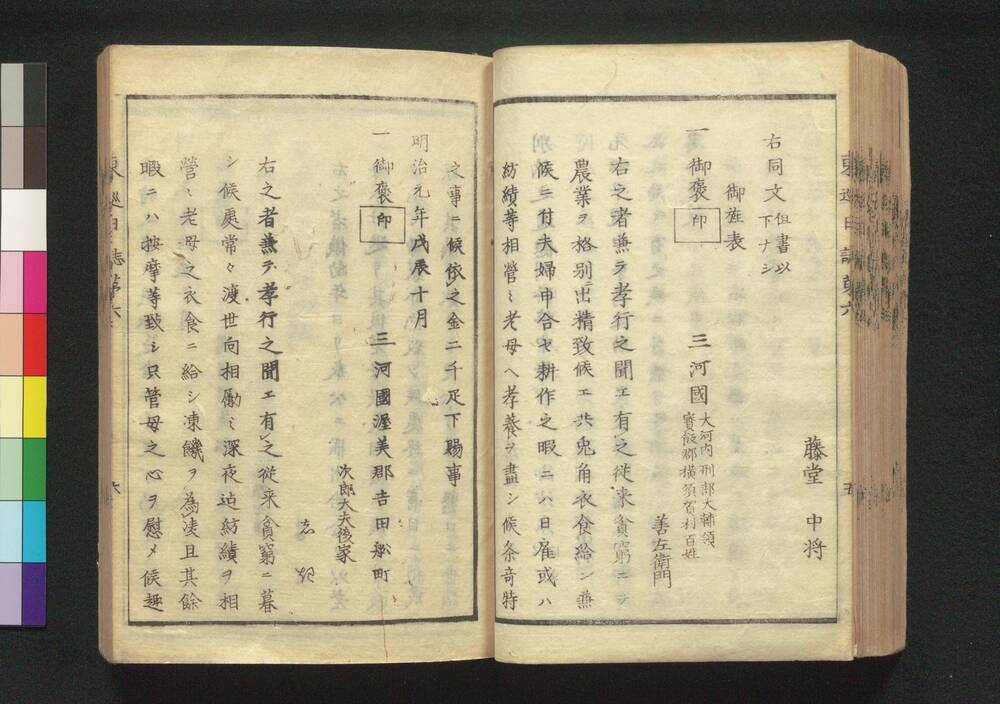 藤堂中将
右同文 但書以下ナシ
御旌表
一 御褒印 三河國 大河内刑部大輔領
寳飯郡横須賀村百姓
善左衛門
右之者兼テ孝行之聞エ有之従来貪窮ニテ
農業ヲ格別出精致候エ共兎角衣食給シ兼
候ニ付夫婦申合セ耕作之暇ニハ日雇或ハ
紡績等相營ミ老母ヘ孝養ヲ盡シ候条奇特
之事ニ候依之金二千疋下賜事
明治元年戊辰十月
一 御褒印 三河國渥美郡吉田舩町
次郎大夫後家
右之者兼テ孝行之聞エ有之従来貪窮ニ暮
シ候處常々渡世向相勵ミ深夜迠紡績ヲ相
營ミ老母之衣食ニ給シ凍饑ヲ為凌且其餘
暇ニハ按摩等致シ只管母之心ヲ慰メ候趣
東巡日誌第六
五
東巡日誌第六
六